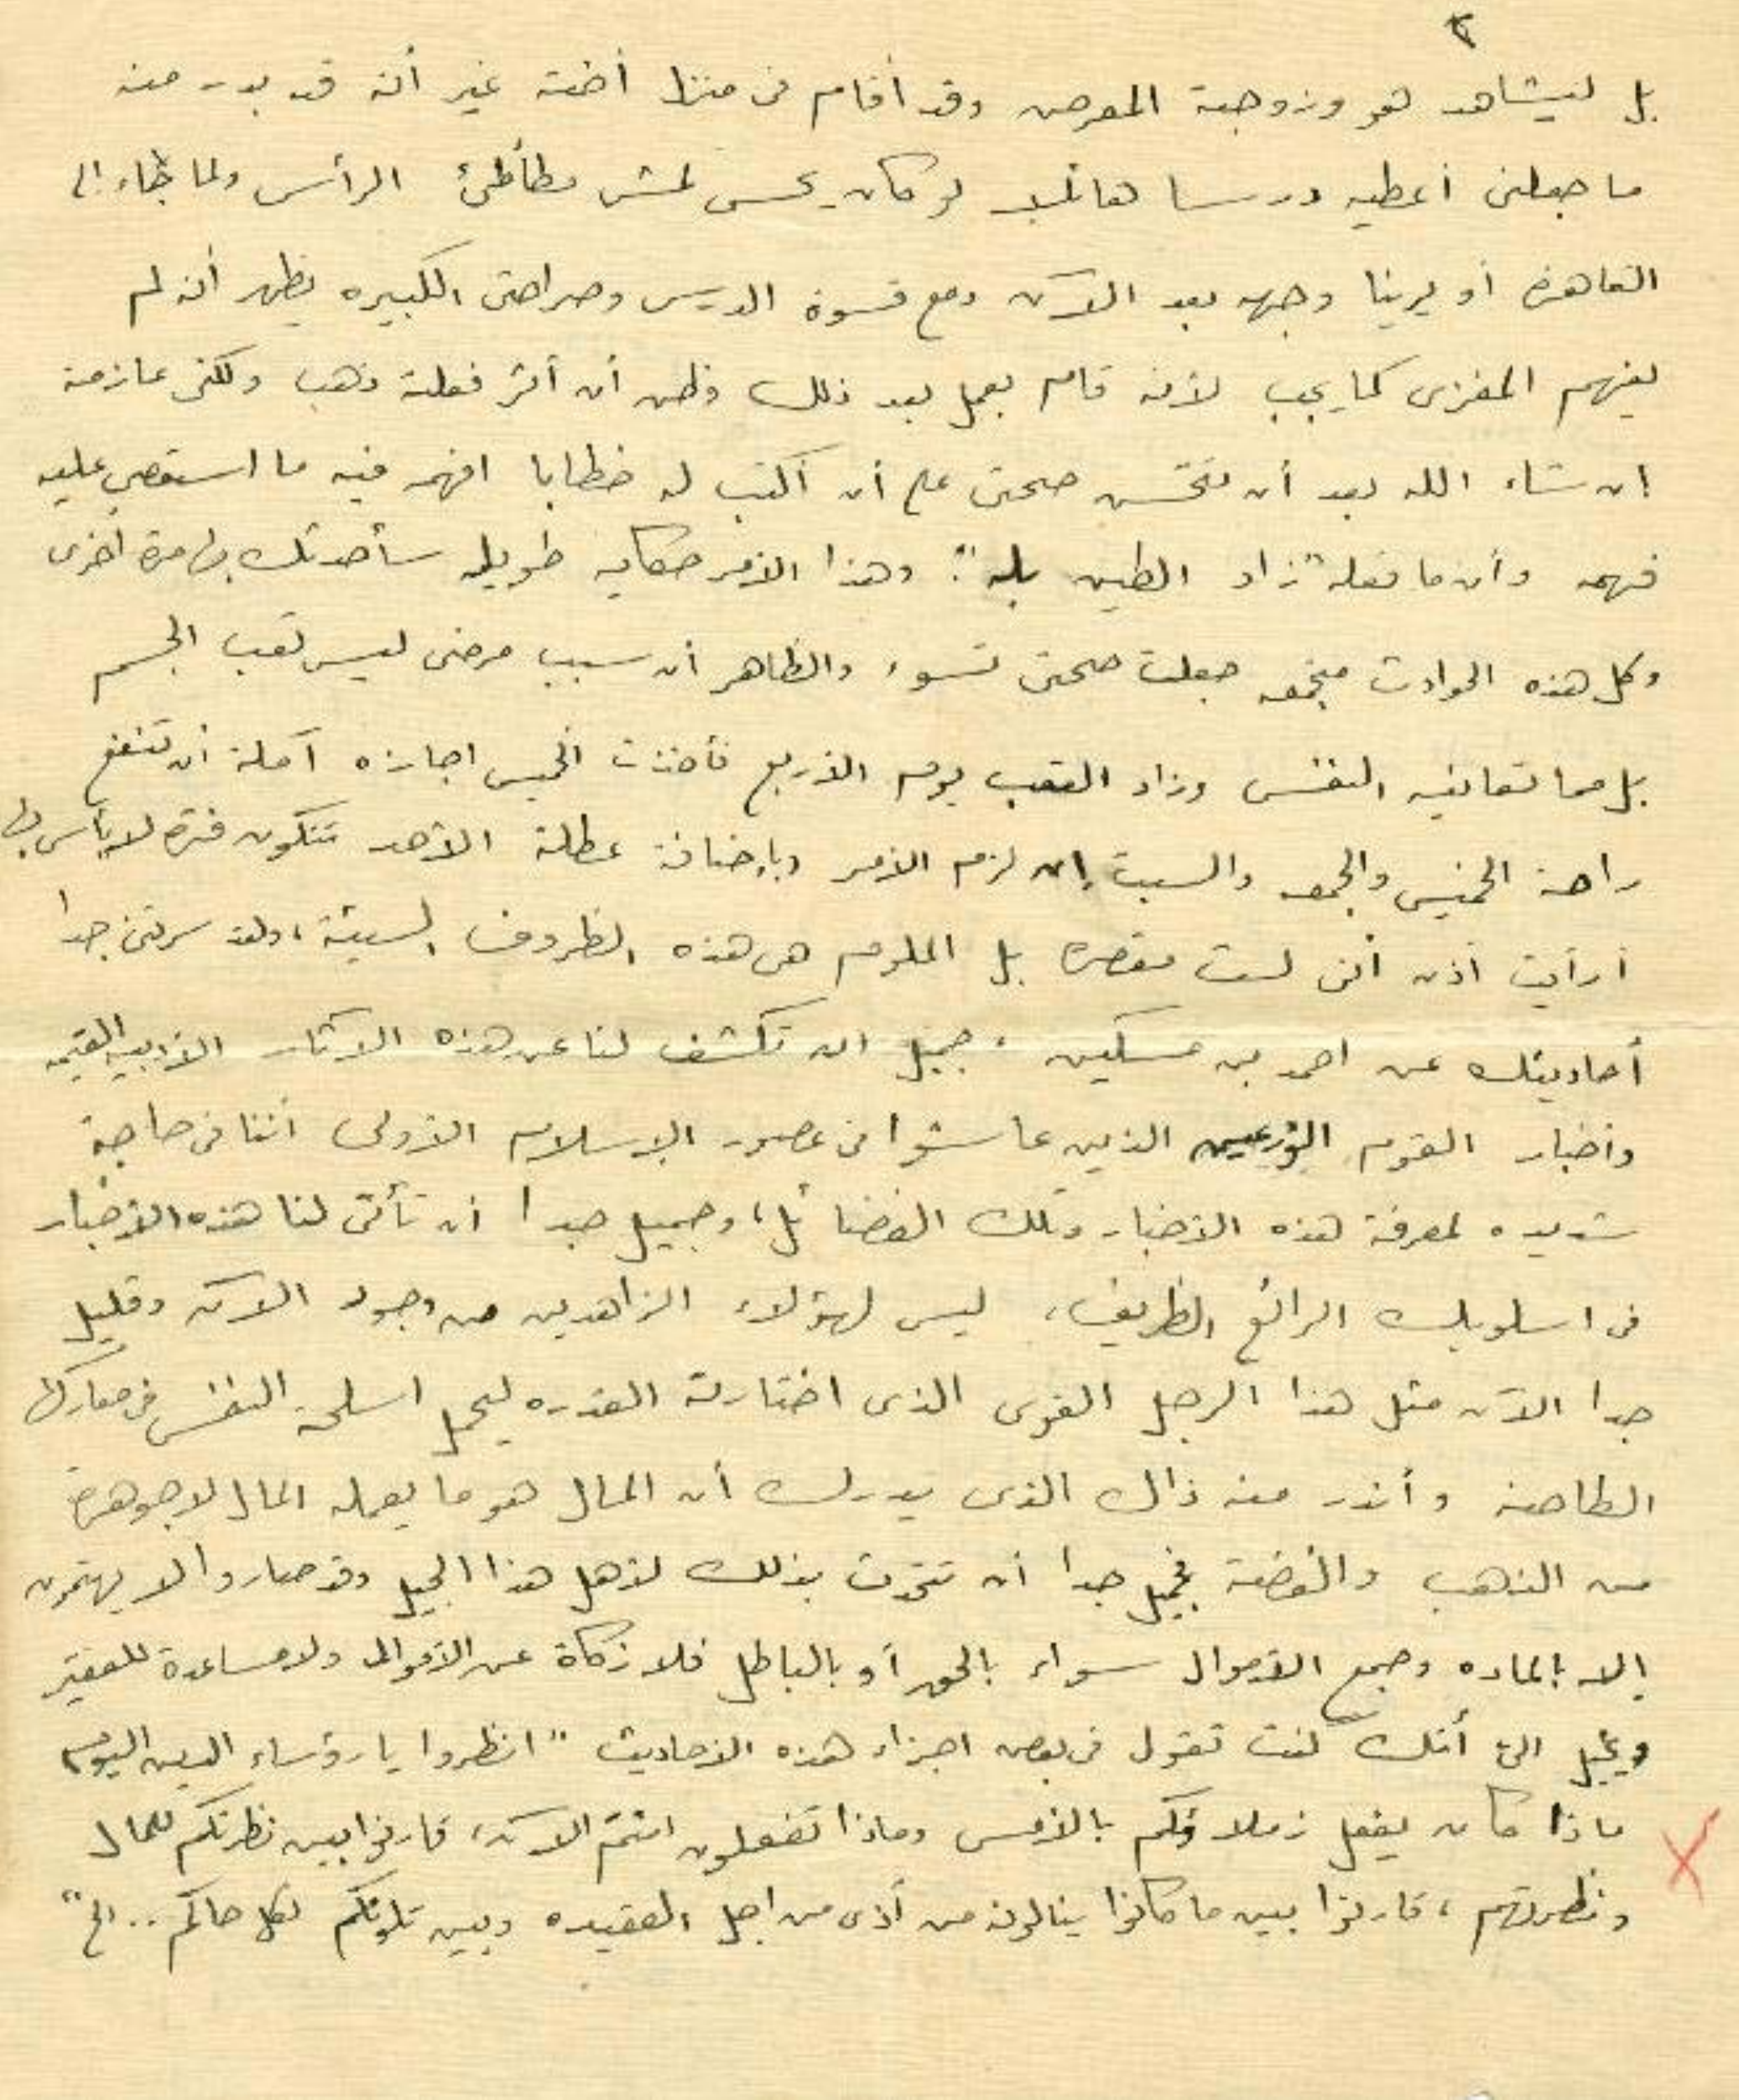 ٢
بل ليشاهد هو وزوجته المعرض وقد أقام فى منزل أخته غير أنه قد بدر منه
ما جعلنى أعطيه درسا هائلا لو كان يحس لمشى مطأطئ الرأس ولما جاء الى
القاهرة أو يرينا وجهه بعد الآن ومع قسوة الدرس وصراحتى الكبيره يظهر أنه لم
يفهم المغزى كما يجب لأنه قام بعمل بعد ذلك وظن أن أثر فعلته ذهب ولكنى عازمة
ان شاء الله بعد أن تتحسن صحتى على أن أكتب له خطابا افهمه فيه ما استعصى عليه
فهمه وأن ما فعله "زاد الطين بله". وهذا الأمر حكايه طويله سأحدثك بها مرة أخرى
وكل هذه الحوادث مجتمعه جعلت صحتى تسوء والظاهر أن سبب مرضى ليس تعب الجسم
بل مما تعانيه النفس وزاد التعب يوم الأربع فأخذت الخميس اجازه آملة أن تنفع
راحة الخميس والجمعه والسبت إن لزم الأمر وبإضافة عطلة الأحد تتكون فترة لا بأس بها
أرأيت اذن أنى لست مقصره بل الملوم هى هذه الظروف السيئة، ولقد سرتنى جدا
أحاديثك عن احمد بن مسكين . جميل ان تكشف لنا عن هذه الآثار الأدبيه القيمه
وأخبار القوم الورعين الذين عاشوا فى عصور الإسلام الأولى أننا فى حاجة
شديده لمعرفة هذه الأخبار وتلك الفضائل، وجميل جدا أن تأتى لنا هذه الأخبار
فى اسلوبك الرائع الظريف، ليس لهؤلاء الزاهدين من وجود الآن وقليل
جدا الآن مثل هذا الرجل القوى الذى اختارته القدره ليحمل اسلحة النفس فى معاركها
الطاحنة وأندر منه ذاك الذى يدرك أن المال هو ما يعمله المال لا جوهره
من الذهب والفضة فجميل جدا أن تتحدث بذلك لأهل هذا الجيل وقد صاروا لا يهتمون
إلا بالماده وجمع الأموال سواء بالحق أو بالباطل فلا زكاة عن الأموال ولا مساعدة للفقير
ويخيل الىّ أنك كنت تقول فى بعض اجزاء هذه الأحاديث "انظروا يا رؤساء الدين اليوم
ماذا كان يفعل زملاؤكم بالأمس وماذا تفعلون انتم الآن، قارنوا بين نظرتكم للمال
ونظرتهم، قارنوا بين ما كانوا ينالونه من أذى من اجل العقيده وبين تلونكم لكل حاكم .. الخ"